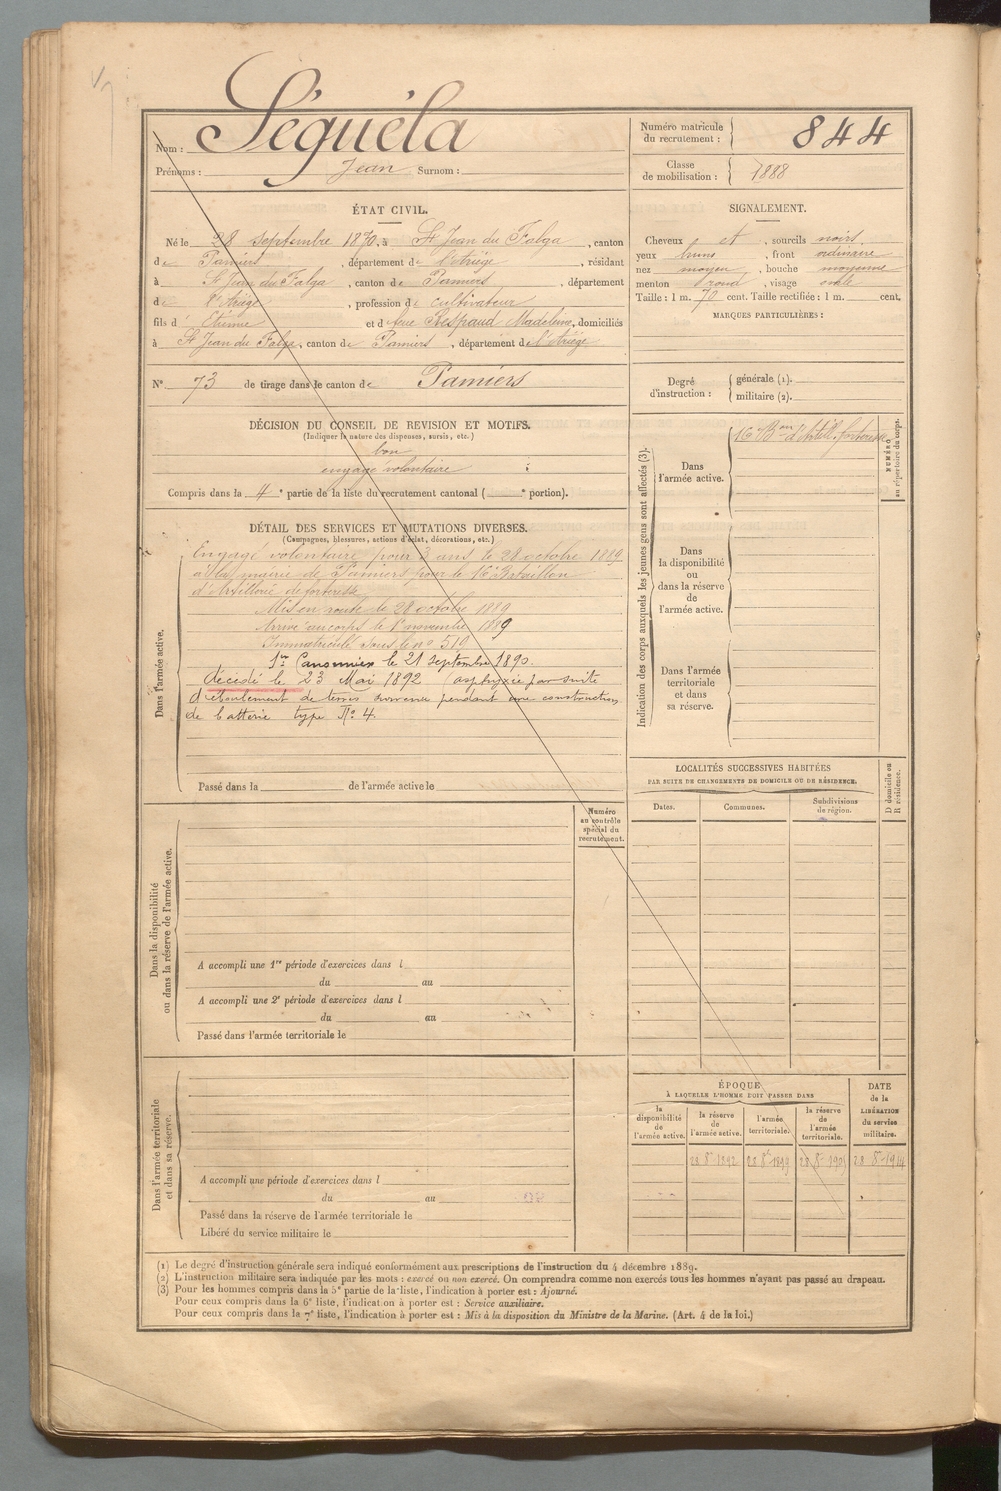 Nom : Séguéla
Prénoms : Jean Surnom :
Numéro matricule du recrutement : 844
Classe de mobilisation : 1888
ÉTAT CIVIL.
Né le 28 septembre 1870, à St Jean du Falga, canton
de Pamiers, département de l'Ariège, résidant
à St Jean du Falga, canton de Pamiers, département
de l'Ariège, profession de cultivateur
fils d' Etienne et d feue Respaud Madeleine, domiciliés
à St Jean du Falga, canton de Pamiers, département de l'Ariège
N° 73 de tirage dans le canton de Pamiers
SIGNALEMENT.
Cheveux et, sourcils noirs,
yeux bruns, front ordinaire
nez moyen, bouche moyenne
menton rond, visage ovale
Taille : 1 m. 70 cent. Taille rectifiée : 1 m. cent.
MARQUES PARTICULIÈRES :
Degré d'instruction :
générale (1).
militaire (2).
DÉCISION DU CONSEIL DE REVISION ET MOTIFS.
(Indiquer la nature des dispenses, sursis, etc.)
bon
engagé volontaire
Compris dans la 4e partie de la liste du recrutement cantonal ( e portion).
DÉTAIL DES SERVICES ET MUTATIONS DIVERSES.
(Campagnes, blessures, actions d'éclat, décorations, etc.)
Dans l'armée active.
Engagé volontaire pour 3 ans le 28 octobre 1889
à la mairie de Pamiers pour le 16e Bataillon
d'Artillerie de forteresse
Mis en route le 28 octobre 1889
Arrivé au corps le 1er novembre 1889
Immatriculé sous le no 519
1er Canonnier le 21 septembre 1890.
décédé le 23 Mai 1892 (asphyxie par suite
d'éboulement de terres survenu pendant une construction
de batterie type No. 4.
Passé dans la de l'armée active le
Indication des corps auxquels les jeunes gens sont affectés (3).
Dans l'armée active.
16e Bon d'Artill. forteresse
NUMÉRO au répertoire du corps.
Dans la disponibilité ou dans la réserve de l'armée active.
Dans l'armée territoriale et dans sa réserve.
LOCALITÉS SUCCESSIVES HABITÉES
PAR SUITE DE CHANGEMENTS DE DOMICILE OU DE RÉSIDENCE.
Dates.
Communes.
Subdivisions de région.
D domicile ou R résidence.
Numéro au contrôle spécial du recrutement.
Dans la disponibilité ou dans la réserve de l'armée active.
A accompli une 1re période d'exercices dans l
du au
A accompli une 2e période d'exercices dans l
du au
Passé dans l'armée territoriale le
Dans l'armée territoriale et dans sa réserve.
A accompli une période d'exercices dans l
du au
Passé dans la réserve de l'armée territoriale le
Libéré du service militaire le
ÉPOQUE
À LAQUELLE L'HOMME DOIT PASSER DANS
la disponibilité de l'armée active.
la réserve de l'armée active.
l'armée territoriale.
la réserve de l'armée territoriale.
DATE de la LIBÉRATION du service militaire.
(1) Le degré d'instruction générale sera indiqué conformément aux prescriptions de l'instruction du 4 décembre 1889.
(2) L'instruction militaire sera indiquée par les mots : exercé ou non exercé. On comprendra comme non exercés tous les hommes n'ayant pas passé au drapeau.
(3) Pour les hommes compris dans la 5e partie de la liste, l'indication à porter est : Ajourné.
Pour ceux compris dans la 6e liste, l'indication à porter est : Service auxiliaire.
Pour ceux compris dans la 7e liste, l'indication à porter est : Mis à la disposition du Ministre de la Marine. (Art. 4 de la loi.)